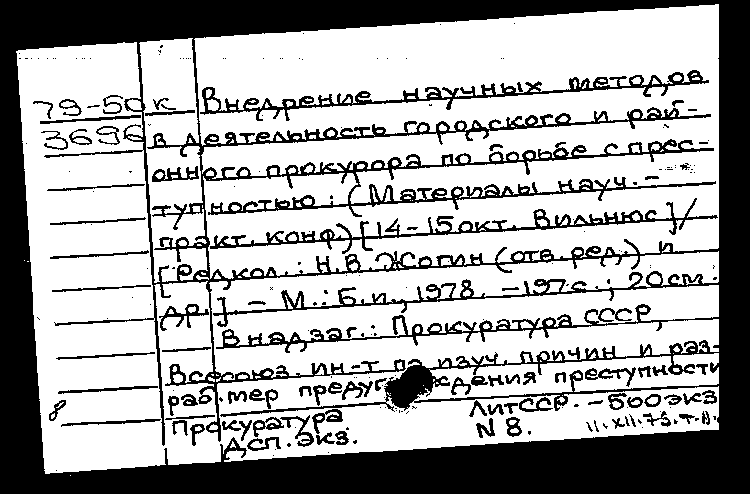 79-50 к Внедрение научных методов
3696 в деятельность городского и рай-
онного прокурора по борьбе с прес-
тупностью : (Материалы науч.-
практ. конф.) [14-15 окт. Вильнюс] /
[Редкол.: Н.В. Жогин (отв. ред.) и
др.]. - М.: Б.и., 1978. - 197с.; 20см.
В надзаг.: Прокуратура СССР,
Всесоюз. ин-т по изуч. причин и раз-
раб. мер предуп ждения преступности
Прокуратура ЛитССР. - 500 экз
8 ДСП. экз. N 8.